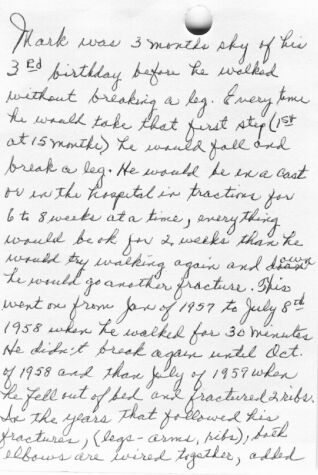 Mark was 3 months shy of his
3rd birthday before he walked
without breaking a leg. Every time
he would take that first step (1st
at 15 months) he would fall and
break a leg. He would be in a cast
or in the hospital in tractions for
6 to 8 weeks at a time, everything
would be ok for 2 weeks than he
would try walking again and down
he would go another fracture. This
went on from Jan of 1957 to July 8th
1958 when he walked for 30 minutes
He didn't break again until Oct.
of 1958 and than July of 1959 when
he fell out of bed and fractured 2 ribs.
In the years that followed his
fractures, (legs - arms, ribs), both
elbows are wired together, added